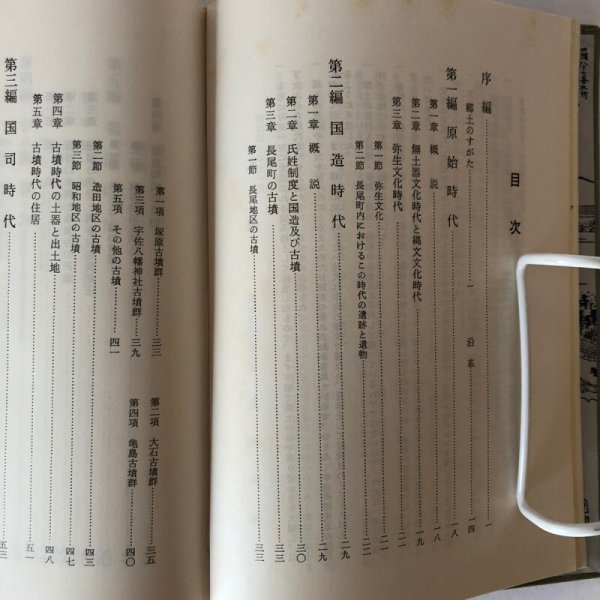 目次
序編
郷土のすがた……一 沿革……一四
第一編 原始時代……一八
第一章 概説……一八
第二章 無土器文化時代と縄文文化時代……一九
第三章 弥生文化時代……二一
第一節 弥生文化……二一
第二節 長尾町内におけるこの時代の遺跡と遺物……二二
第二編 国造時代……二九
第一章 概説……二九
第二章 氏姓制度と国造及び古墳……三〇
第三章 長尾町の古墳……三三
第一節 長尾地区の古墳……三三
第一項 塚原古墳群……三三 第二項 大石古墳群……三五
第三項 宇佐八幡神社古墳群……三九 第四項 亀島古墳群……四〇
第五項 その他の古墳……四一
第二節 造田地区の古墳……四三
第三節 昭和地区の古墳……四七
第四章 古墳時代の土器と出土地……四八
第五章 古墳時代の住居……五一
第三編 国司時代……五三